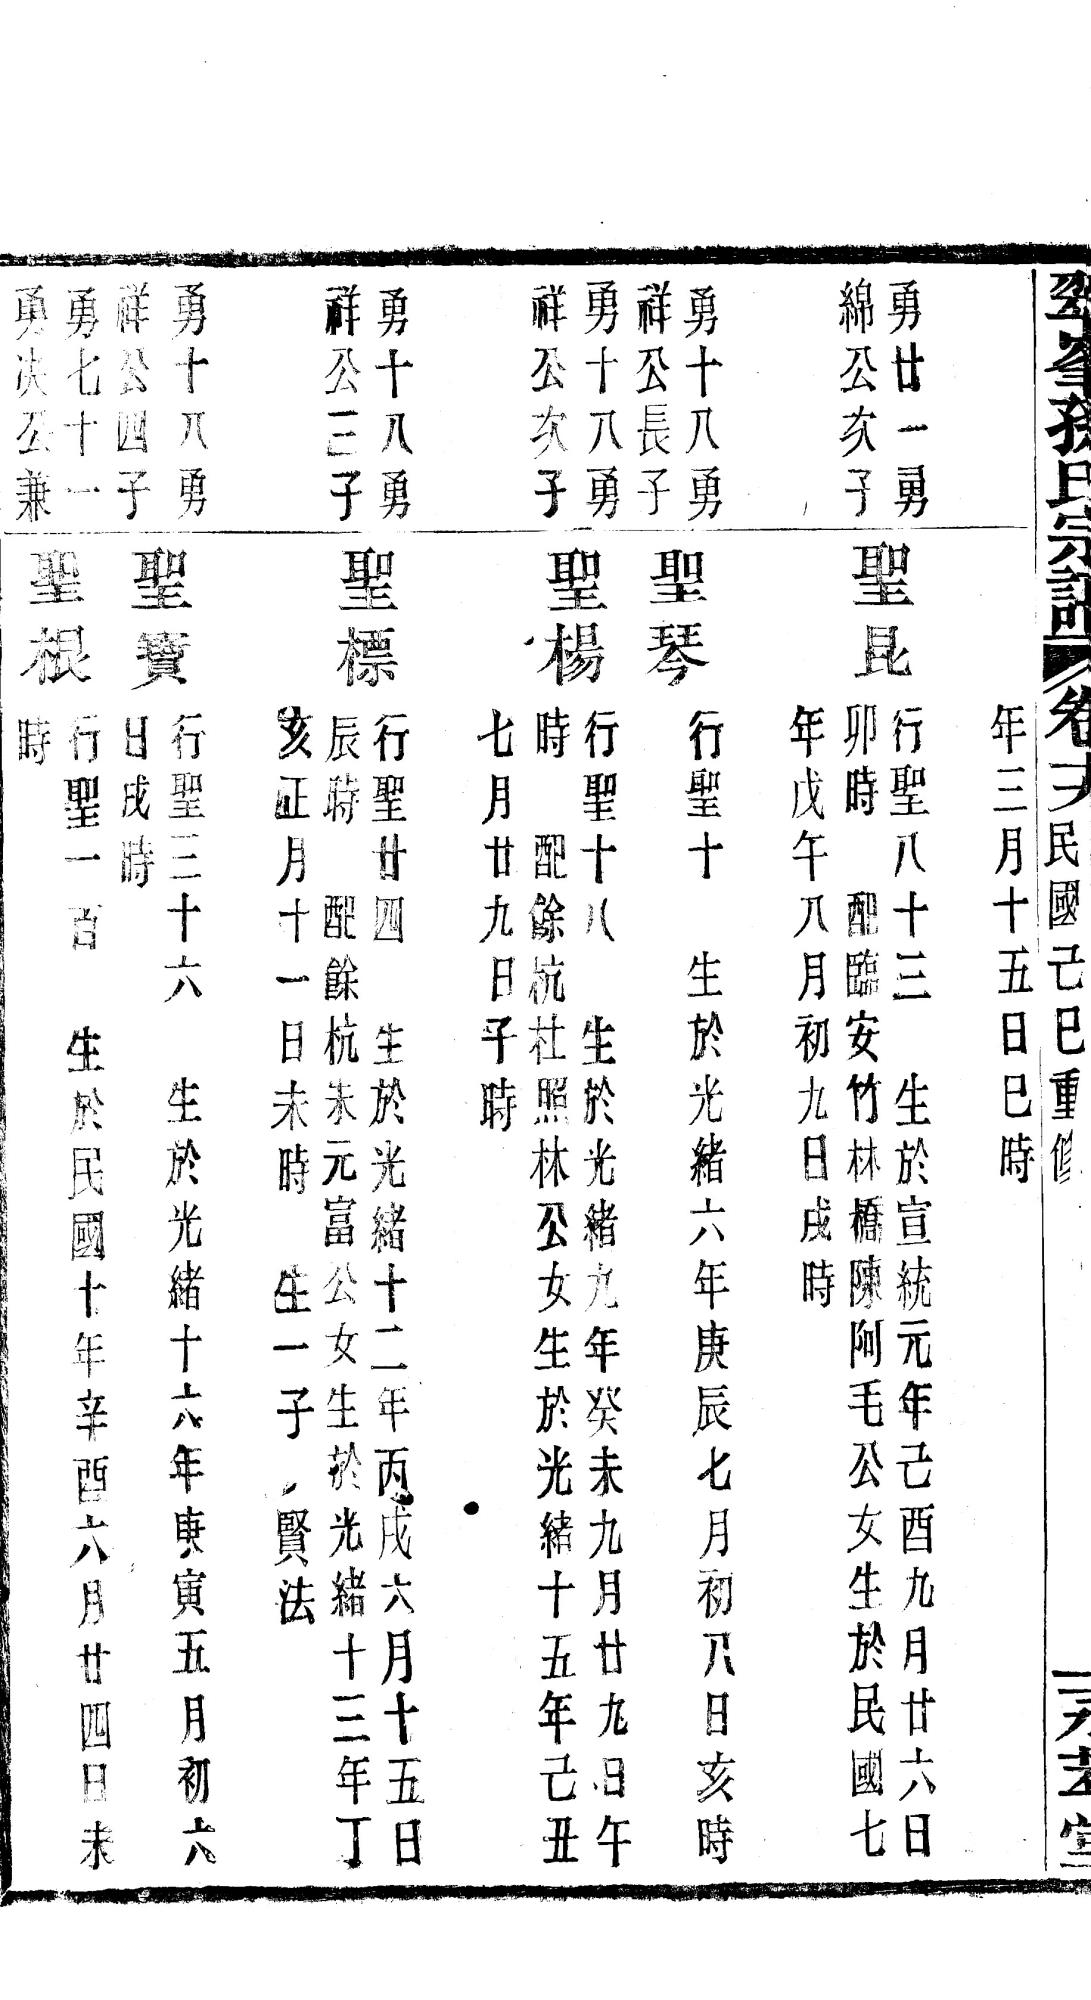 孫氏宗譜 卷十六 民國己巳重修
年三月十五日巳時
勇廿一勇
綿公次子
聖昆
行聖八十三 生於宣統元年己酉九月廿六日
卯時 配臨安竹林橋陳阿毛公女生於民國七
年戊午八月初九日戌時
勇十八勇
祥公長子
聖琴
行聖十 生於光緒六年庚辰七月初八日亥時
勇十八勇
祥公次子
聖楊
行聖十八 生於光緒九年癸未九月廿九日午
時 配餘杭杜照林公女生於光緒十五年己丑
七月廿九日子時
勇十八勇
祥公三子
聖標
行聖廿四 生於光緒十二年丙戌六月十五日
辰時 配餘杭朱元富公女生於光緒十三年丁
亥正月十一日未時 生一子 賢法
勇十八勇
祥公四子
聖寶
行聖三十六 生於光緒十六年庚寅五月初六
日戌時
勇七十一
勇決公兼
聖根
行聖一百 生於民國十年辛酉六月廿四日未
時